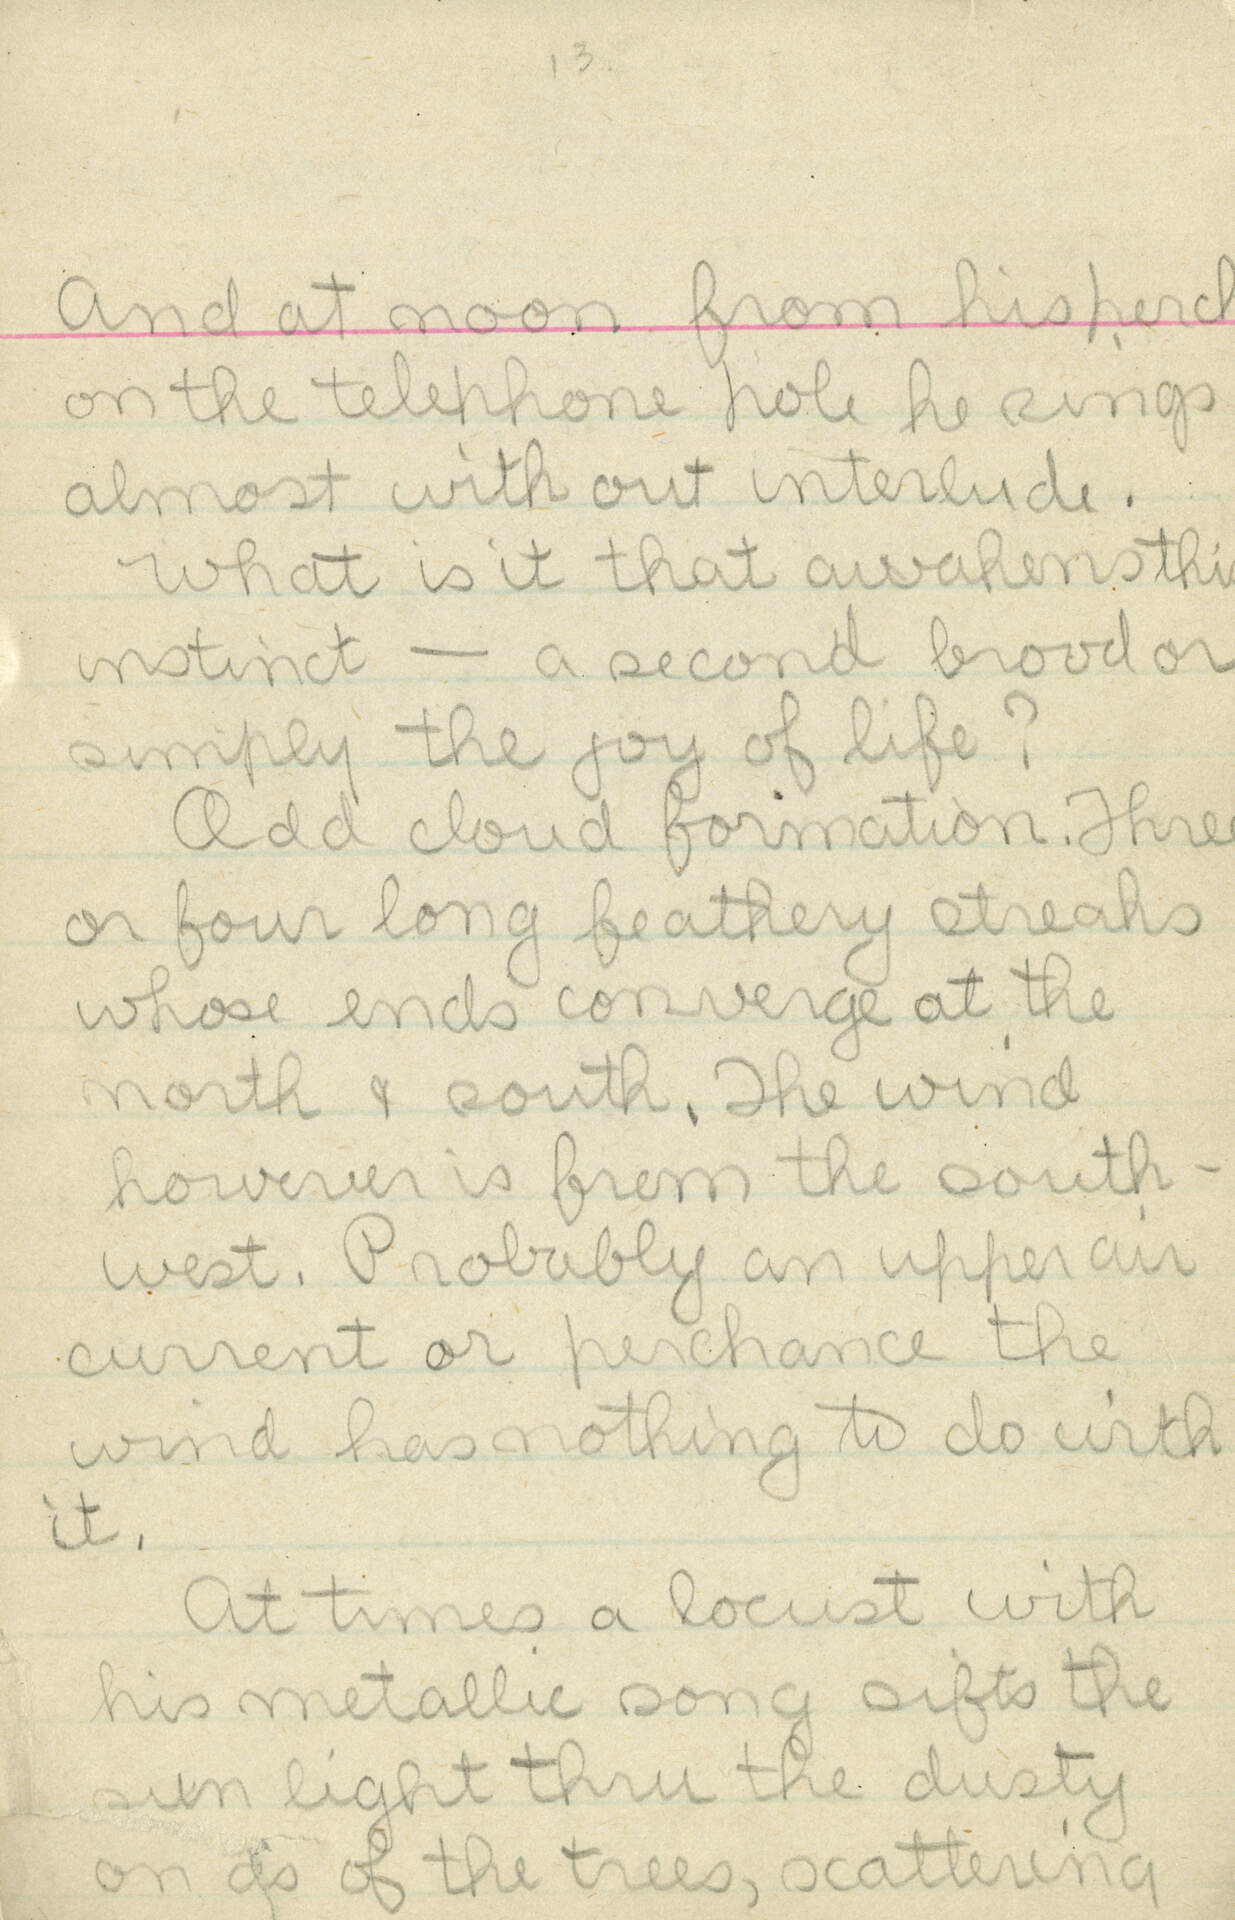 13.
And at noon from his perch
on the telephone pole he sings
almost with out interlude.
What is it that awakens this
instinct — a second brood or
simply the joy of life?
Odd cloud formation. Three
or four long feathery streaks
whose ends converge at the
north & south. The wind
however is from the south-
west. Probably an upper air
current or perchance the
wind has nothing to do with
it.
At times a locust with
his metallic song sifts the
sun light thru the dusty
of the trees, scattering